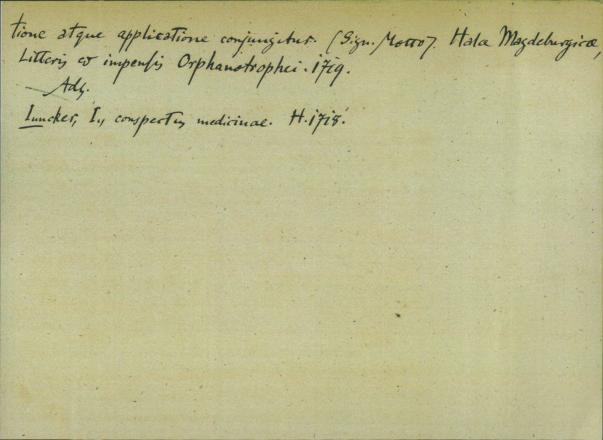 tione atque applicatione conjungitur. (Sign. Motto). Hala Magdeburgicæ,
Litteris et impensis Orphanotrophei. 1719.
— Adl.
Iuncker, I., conspectus medicinae. H. 1718.